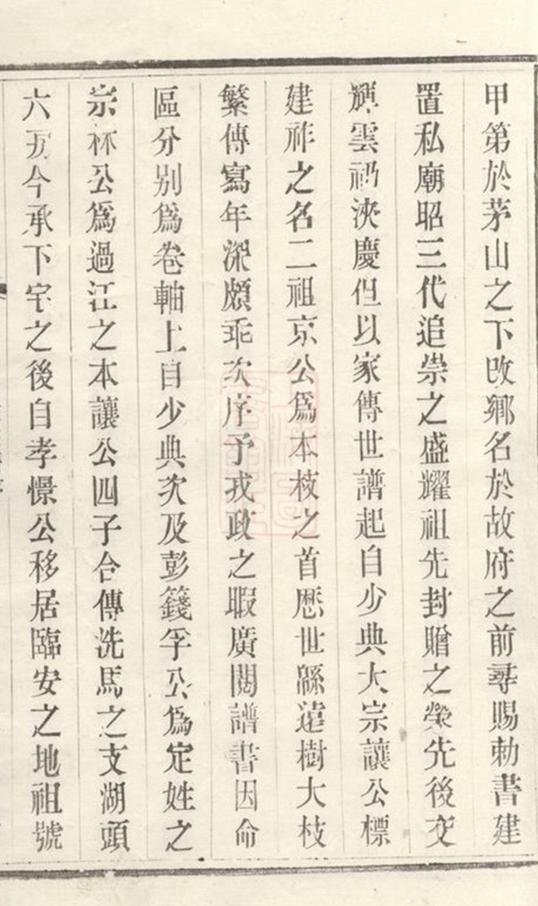 甲第於茅山之下改鄉名於故府之前尋賜勅書建
置私廟昭三代追崇之盛耀祖先封贈之榮先後交
輝雲礽浹慶但以家傳世譜起自少典大宗讓公標
建祚之名二祖京公爲本枝之首歷世緜遠樹大枝
繁傳寫年深頗乖次序予戎政之暇廣閱譜書因命
區分别爲卷軸上自少典次及彭籛孚公爲定姓之
宗林公爲過江之本讓公四子合傳洗馬之支湖頭
六房今承下宅之後自孝憬公移居臨安之地祖號